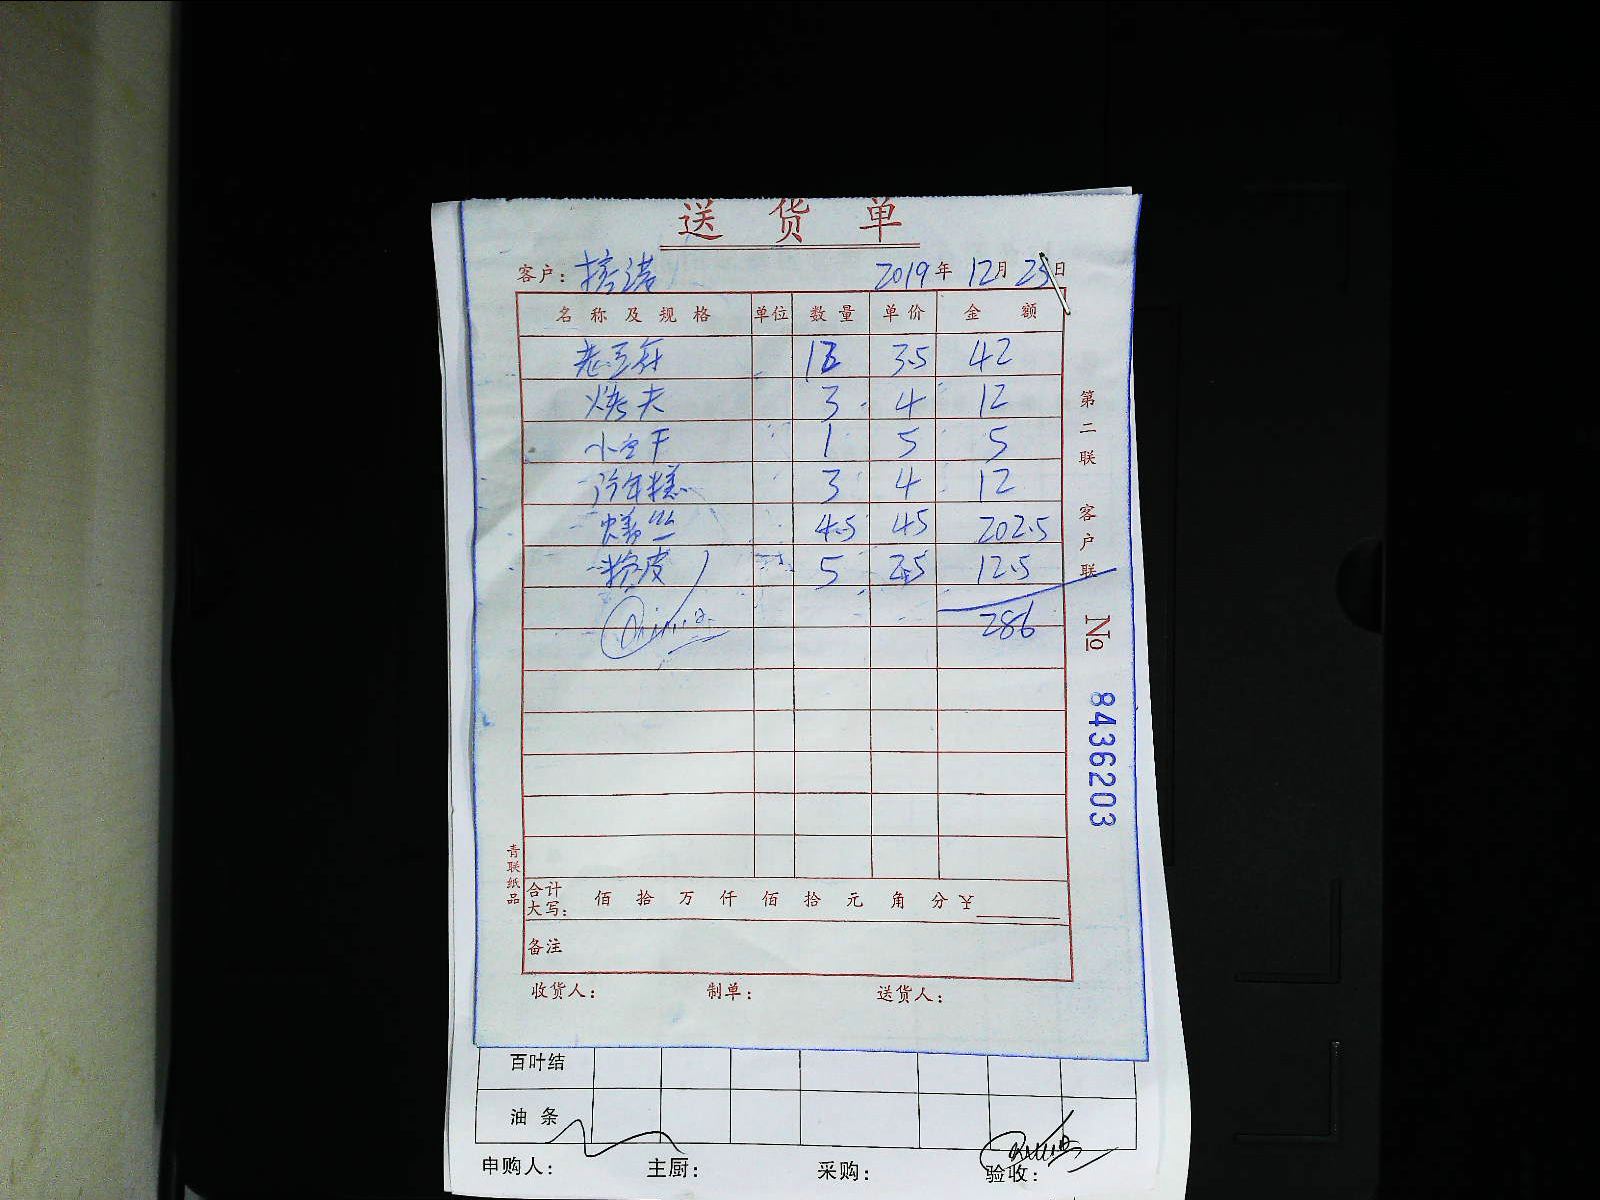 送货单
客户： 2019年12月23日
名称及规格 单位 数量 单价 金额
老豆腐 12 3.5 42
烤夫 3 4 12
小豆干 1 5 5
年糕 3 4 12
丝 4.5 45 202.5
粉皮 5 2.5 12.5
286
第二联 客户联
No 8436203
青联纸品
合计大写： 佰 拾 万 仟 佰 拾 元 角 分 ¥
备注
收货人： 制单： 送货人：
百叶结
油条
申购人： 主厨： 采购： 验收：